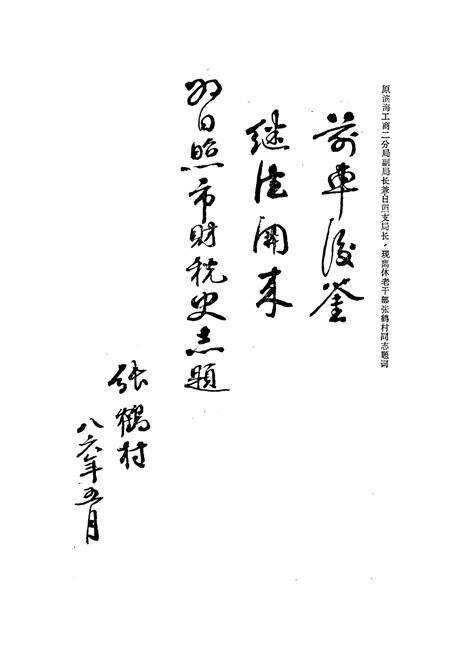 原滨海工商二分局副局长兼日照支局长，现离休老干部张鹤村同志题词
前车后鉴
继往开来
为日照市财税史志题
张鹤村
八六年五月